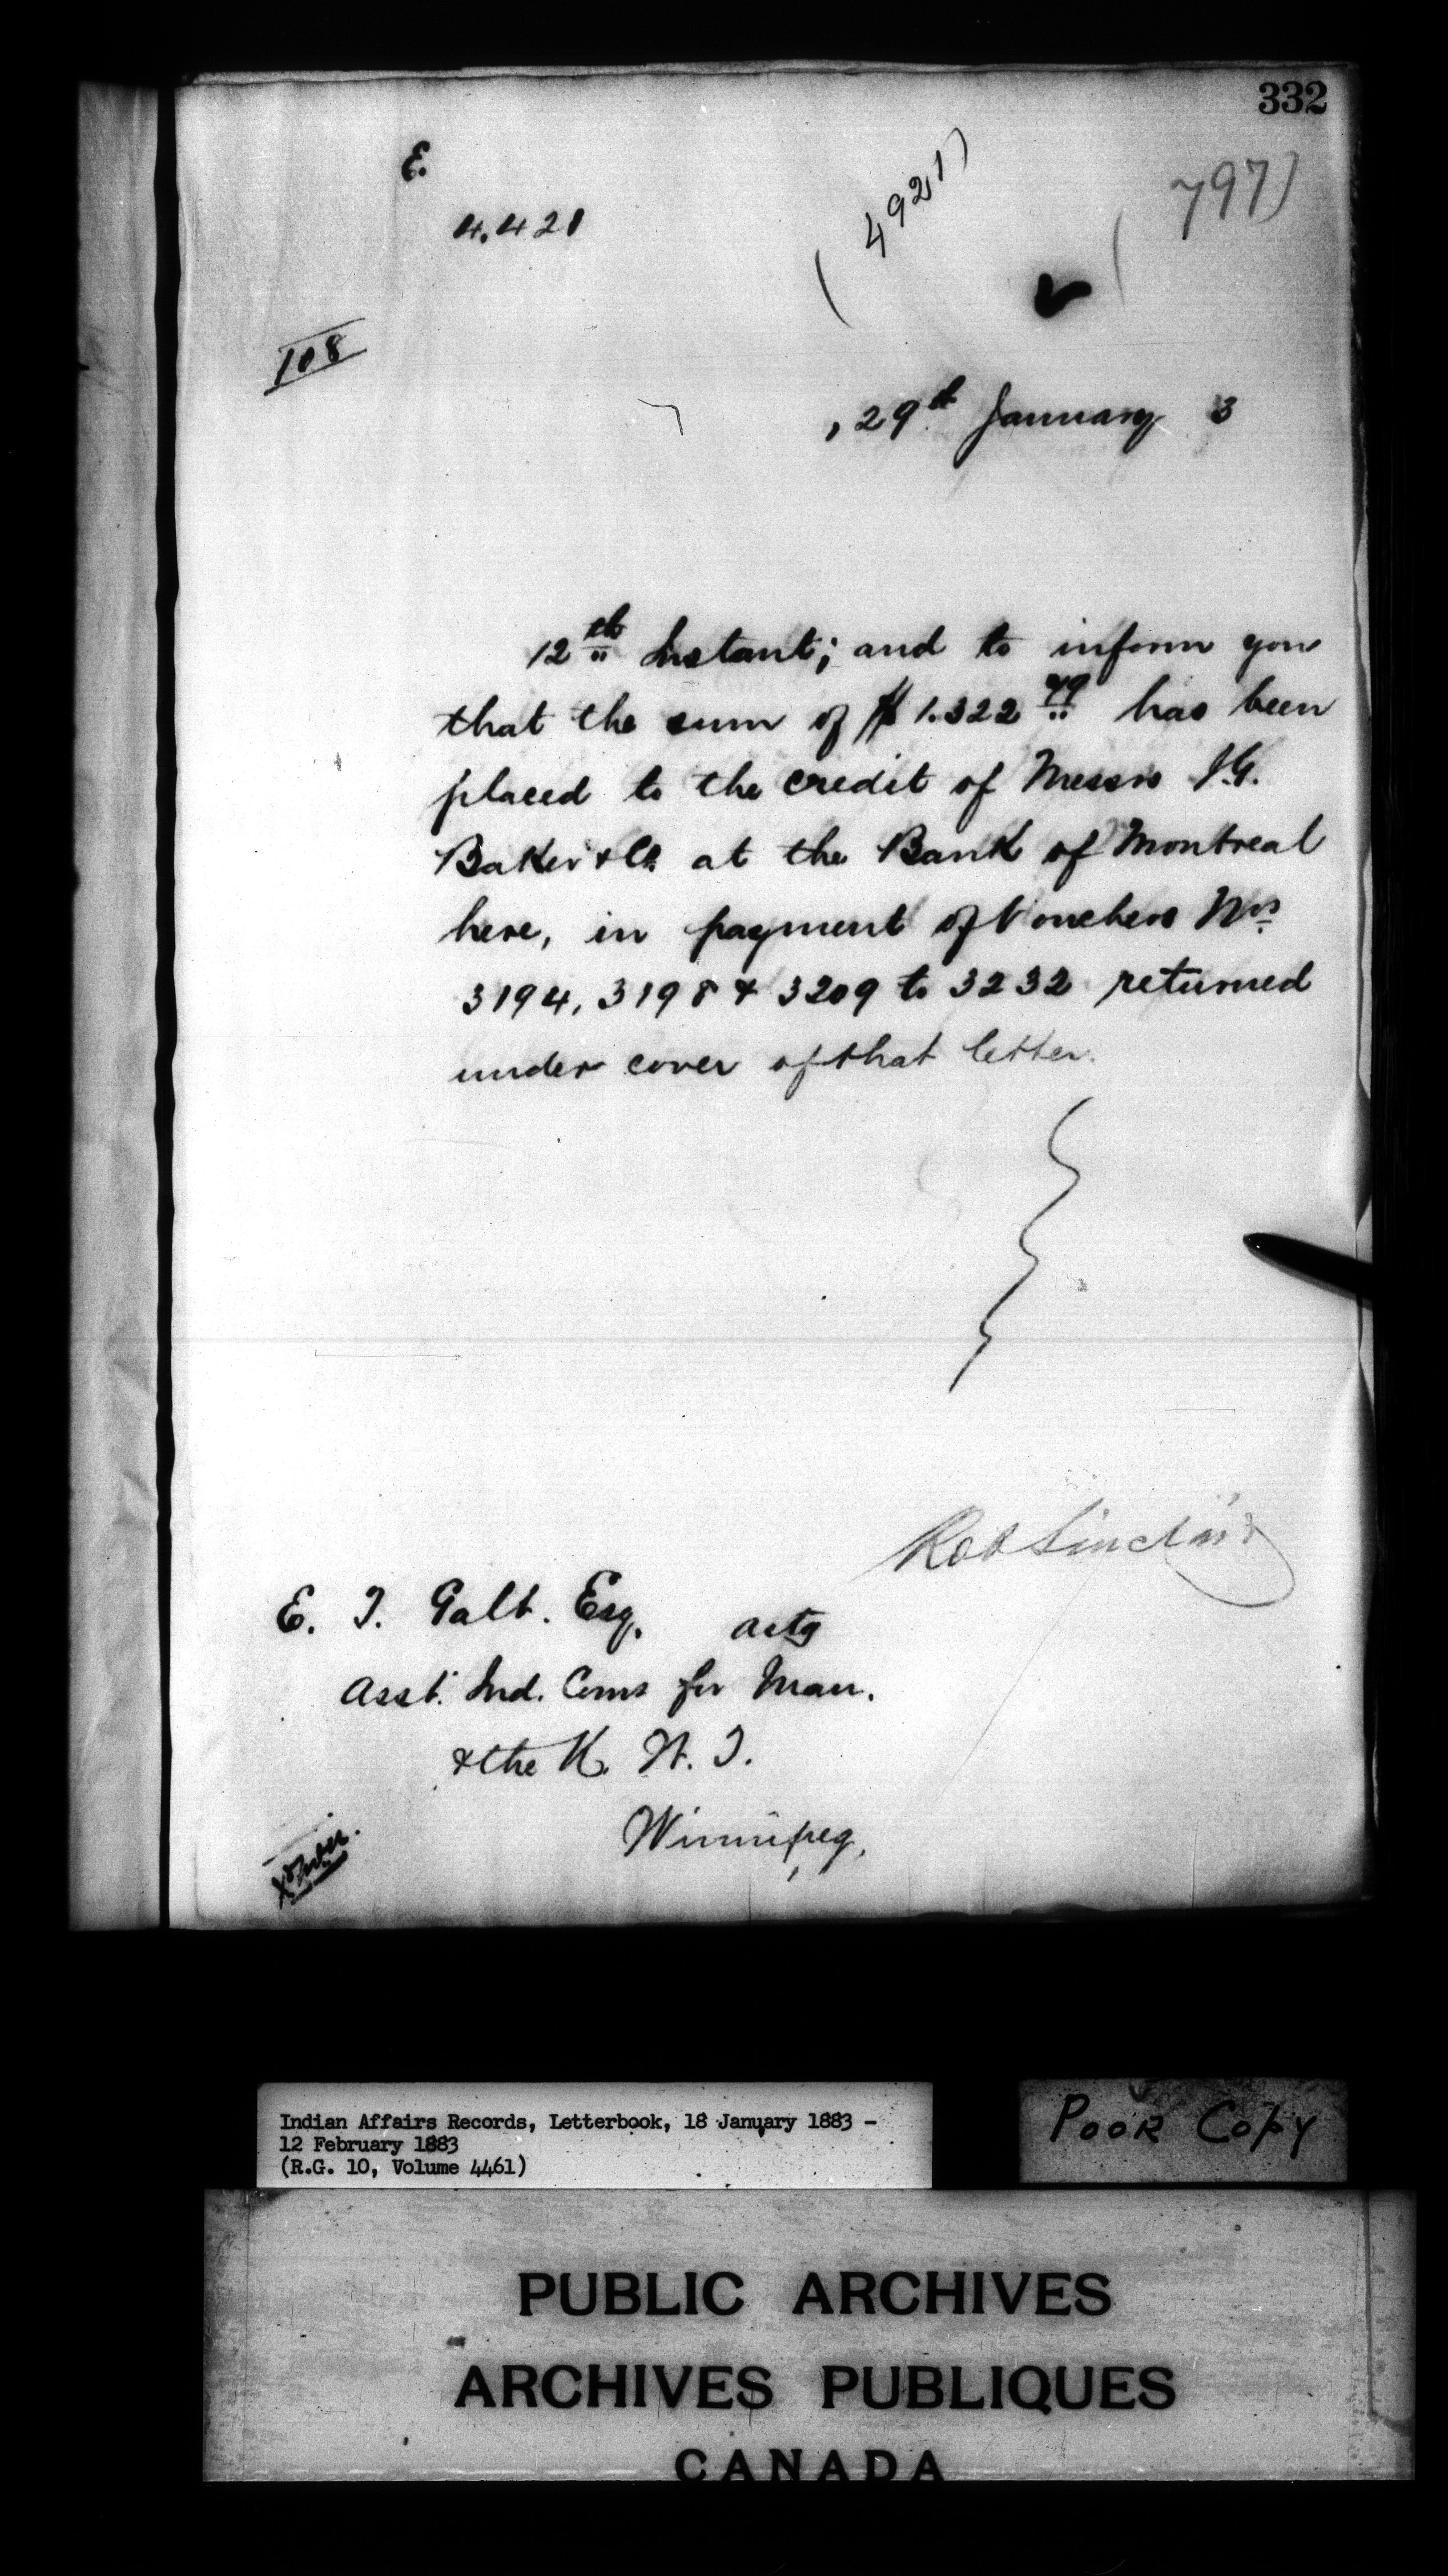 332
E.
4.421
(4921)
(797)
108
, 29th January 3
12th Instant; and to inform you
that the sum of $1.322 79 has been
placed to the credit of Messrs I.G.
Baker & Co. at the Bank of Montreal
here, in payment of Vouchers Nos
3194, 3198 & 3209 to 3232 returned
under cover of that letter.
Rob Sinclair
E. T. Galt. Esq. actg
Asst. Ind. Coms for Man.
& the N. W. T.
Winnipeg,
Indian Affairs Records, Letterbook, 18 January 1883 -
12 February 1883
(R.G. 10, Volume 4461)
POOR COPY
PUBLIC ARCHIVES
ARCHIVES PUBLIQUES
CANADA